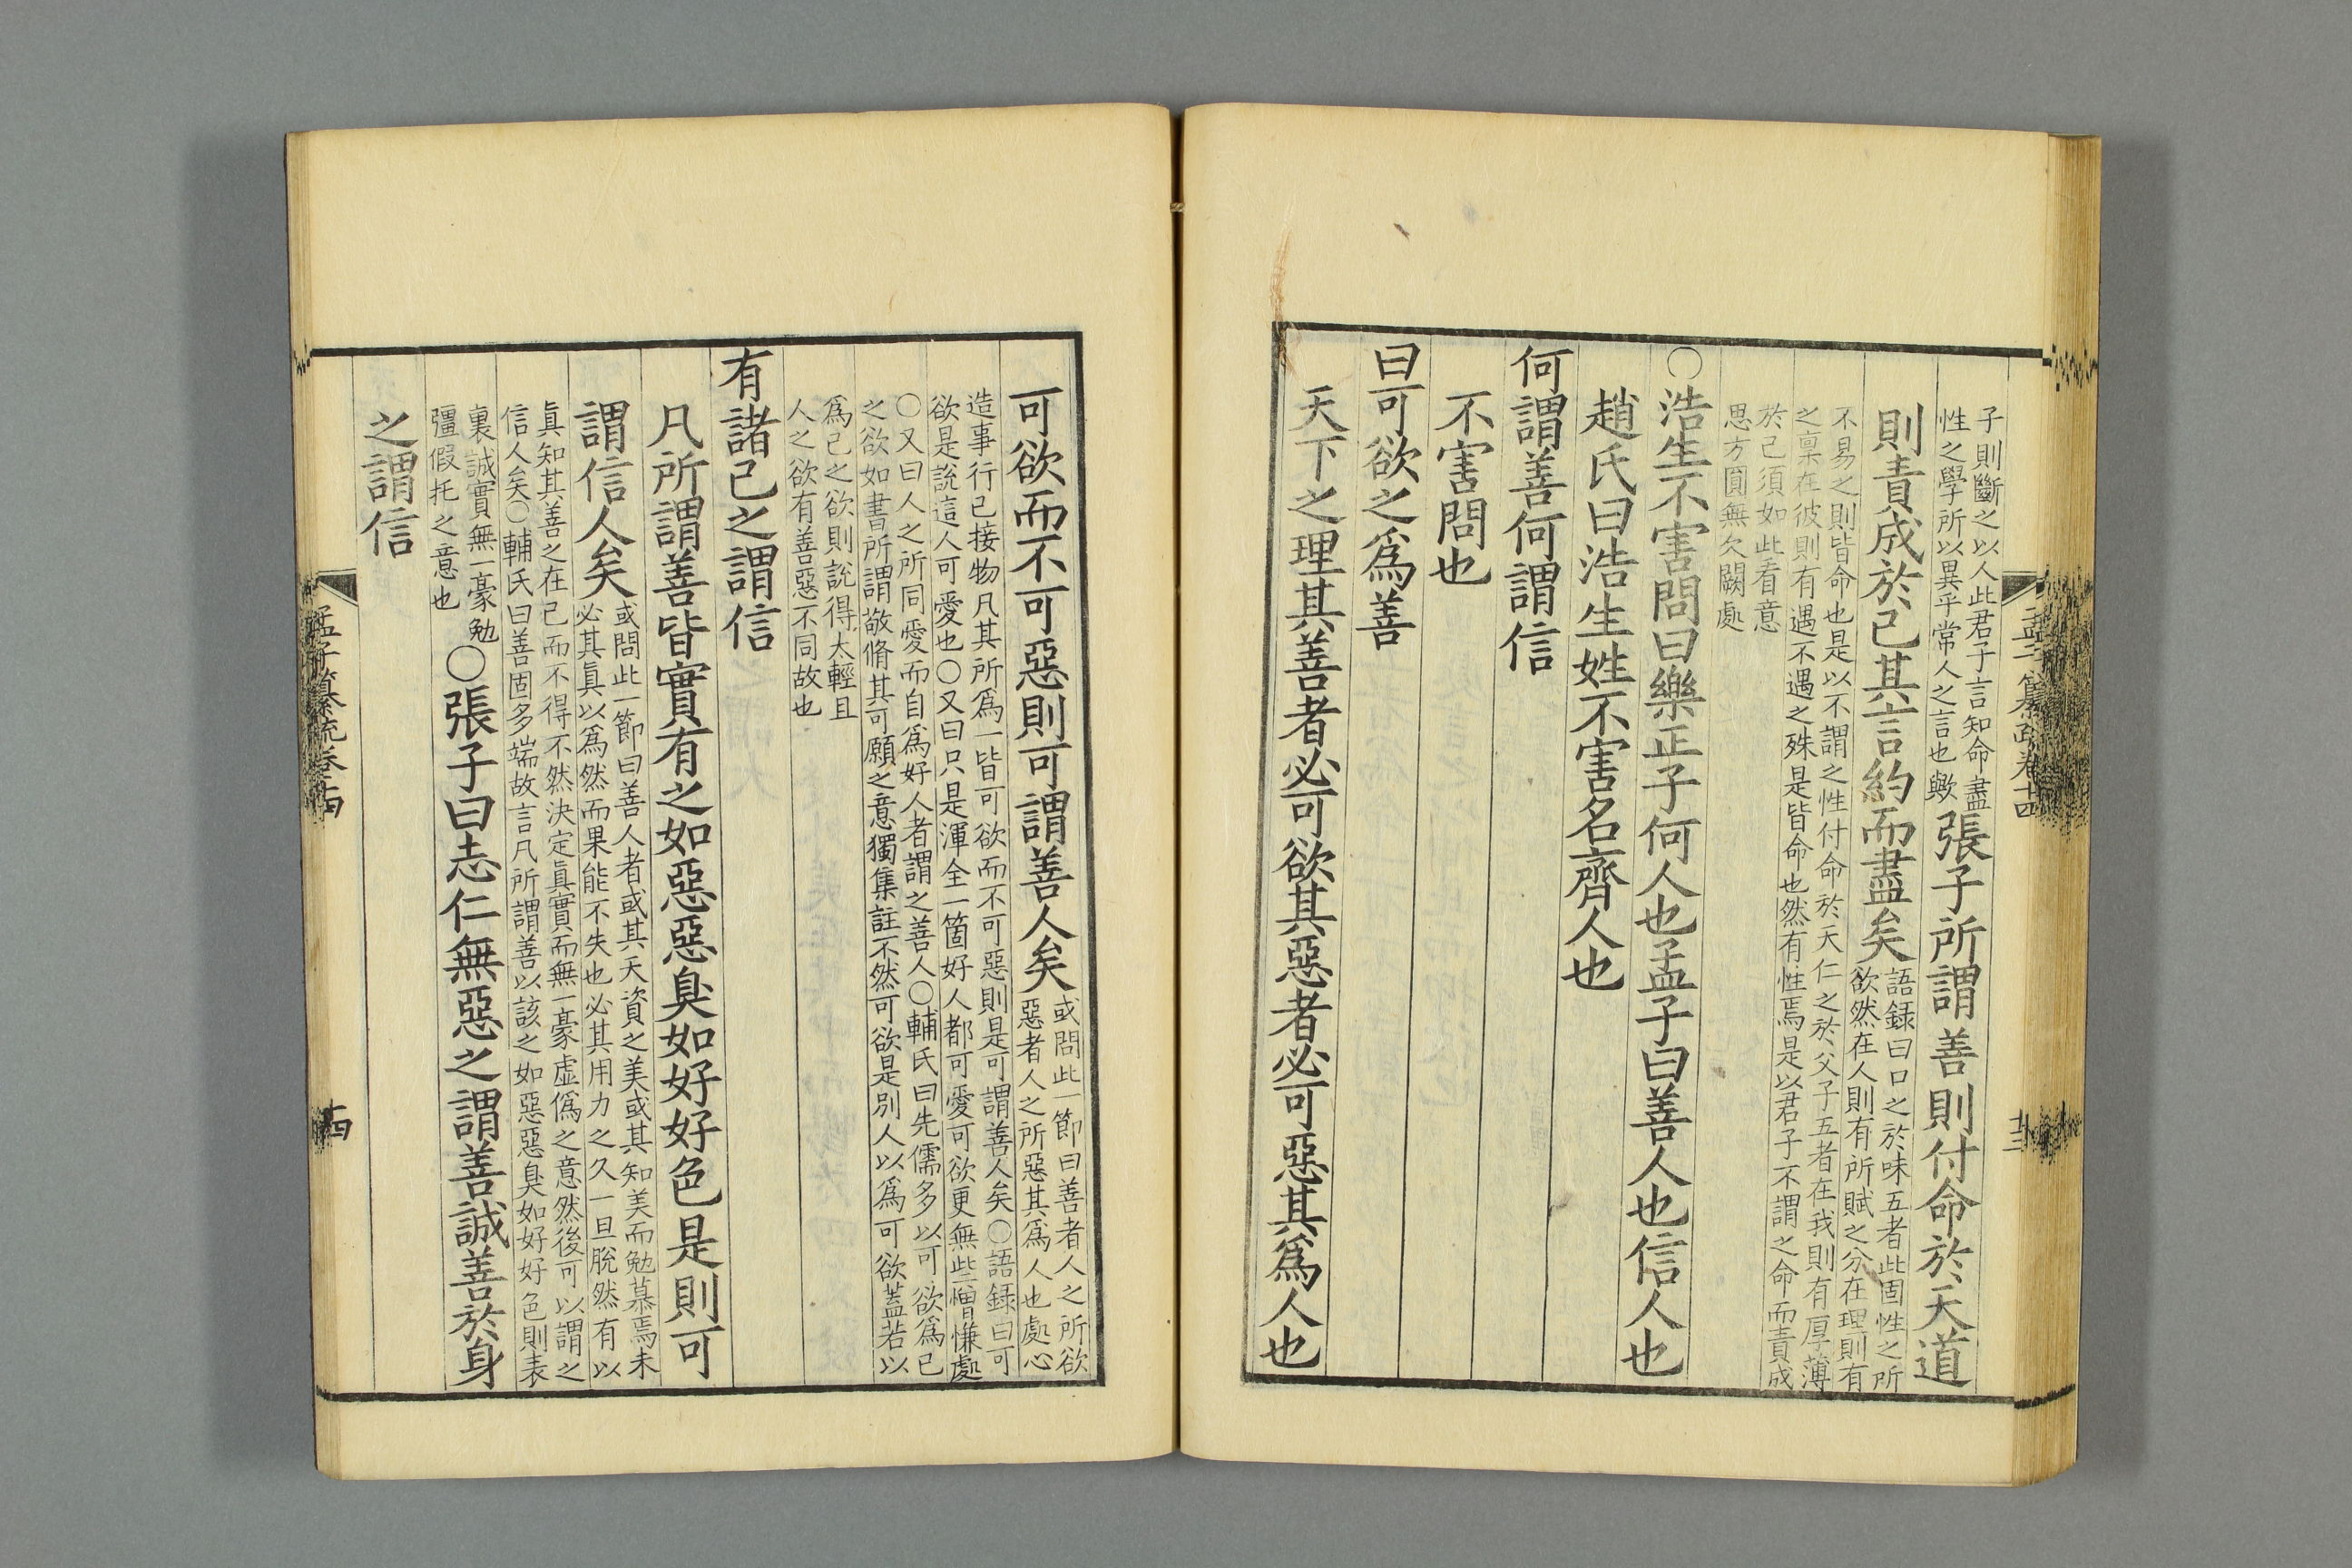 子則斷之以人此君子言知命盡
性之學所以異乎常人之言也歟
張子所謂善則付命於天道
則責成於己其言約而盡矣
語録曰口之於味五者此固性之所
欲然在人則有所賦之分在理則有
不易之則皆命也是以不謂之性付命於天仁之於父子五者在我則有厚薄
之稟在彼則有遇不遇之殊是皆命也然有性焉是以君子不謂之命而責成
於己須如此看意
思方圓無欠闕處
〇浩生不害問曰樂正子何人也孟子曰善人也信人也
趙氏曰浩生姓不害名齊人也
何謂善何謂信
不害問也
曰可欲之爲善
天下之理其善者必可欲其惡者必可惡其爲人也
可欲而不可惡則可謂善人矣
或問此一節曰善者人之所欲
惡者人之所惡其爲人也處心
造事行己接物凡其所爲一皆可欲而不可惡則是可謂善人矣〇語録曰可
欲是說這人可愛也〇又曰只是渾全一箇好人都可愛可欲更無些憎慊處
〇又曰人之所同愛而自爲好人者謂之善人〇輔氏曰先儒多以可欲爲己
之欲如書所謂敬脩其可願之意獨集註不然可欲是別人以爲可欲蓋若以
爲己之欲則說得太輕且
人之欲有善惡不同故也
有諸己之謂信
凡所謂善皆實有之如惡惡臭如好好色是則可
謂信人矣
或問此一節曰善人者或其天資之美或其知美而勉慕焉未
必其真以爲然而果能不失也必其用力之久一旦脫然有以
眞知其善之在己而不得不然決定眞實而無一豪虛僞之意然後可以謂之
信人矣〇輔氏曰善固多端故言凡所謂善以該之如惡惡臭如好好色則表
裏誠實無一豪勉
彊假托之意也
〇張子曰志仁無惡之謂善誠善於身
之謂信
孟子纂疏卷十四
十三
孟子纂疏卷十四
十四